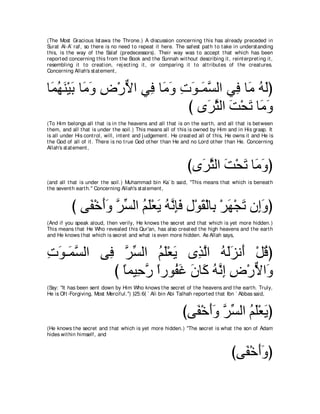 (The Most Gracious Istawa the Throne.) A discussion concerning this has already preceded in
Surat Al-A`raf, so there is no need to repeat it here. The safest path to take in understanding
this, is the way of the Salaf (predecessors). Their way was to accept that which has been
reported concerning this from the Book and the Sunnah without describing it, reinterpreting it,
resembling it to creation, rejecting it, or comparing it to attributes of the creatures.
Concerning Allah's statement,
(لَهُ مَا فِي السَّمَـوَتِ وَمَا فِي الاٌّرْضِ وَمَا بَيْنَهُمَا
وَمَا تَحْتَ الثَّرَى )
(To Him belongs all that is in the heavens and all that is on the earth, and all that is between
them, and all that is under the soil.) This means all of this is owned by Him and in His grasp. It
is all under His control, will, intent and judgement. He created all of this, He owns it and He is
the God of all of it. There is no true God other than He and no Lord other than He. Concerning
Allah's statement,
(وَمَا تَحْتَ الثَّرَى)
(and all that is under the soil.) Muhammad bin Ka`b said, "This means that which is beneath
the seventh earth." Concerning Allah's statement,
(وَإِن تَجْهَرْ بِالْقَوْلِ فَإِنَّهُ يَعْلَمُ السِّرَّ وَأَخْفَى )
(And if you speak aloud, then verily, He knows the secret and that which is yet more hidden.)
This means that He Who revealed this Qur'an, has also created the high heavens and the earth
and He knows that which is secret and what is even more hidden. As Allah says,
(قُلْ أَنزَلَهُ الَّذِى يَعْلَمُ السِّرَّ فِى السَّمَـوَتِ
وَالاٌّرْضِ إِنَّهُ كَانَ غَفُوراً رَّحِيماً )
(Say: "It has been sent down by Him Who knows the secret of the heavens and the earth. Truly,
He is Oft-Forgiving, Most Merciful.") )25:6( `Ali bin Abi Talhah reported that Ibn `Abbas said,
(يَعْلَمُ السِّرَّ وَأَخْفَى)
(He knows the secret and that which is yet more hidden.) "The secret is what the son of Adam
hides within himself, and
(وَأَخْفَى)